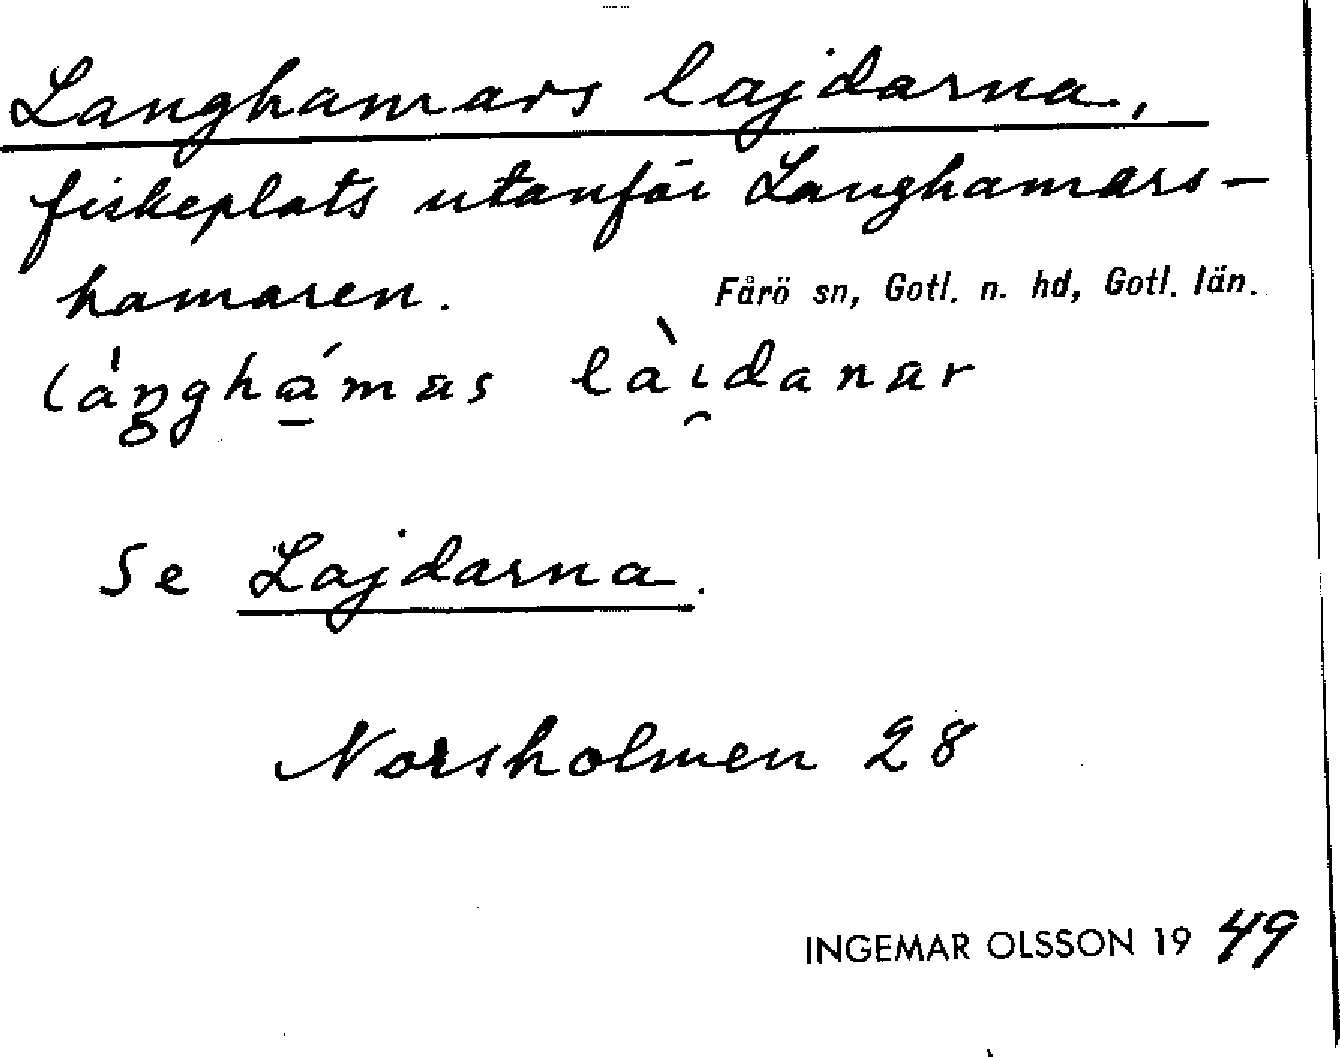 Langhamars lajdarna,
fiskeplats utanför Langhamars-
hamaren. Fårö sn, Gotl. n. hd, Gotl. län.
Se Lajdarna.
Norsholmen 28
INGEMAR OLSSON 1949